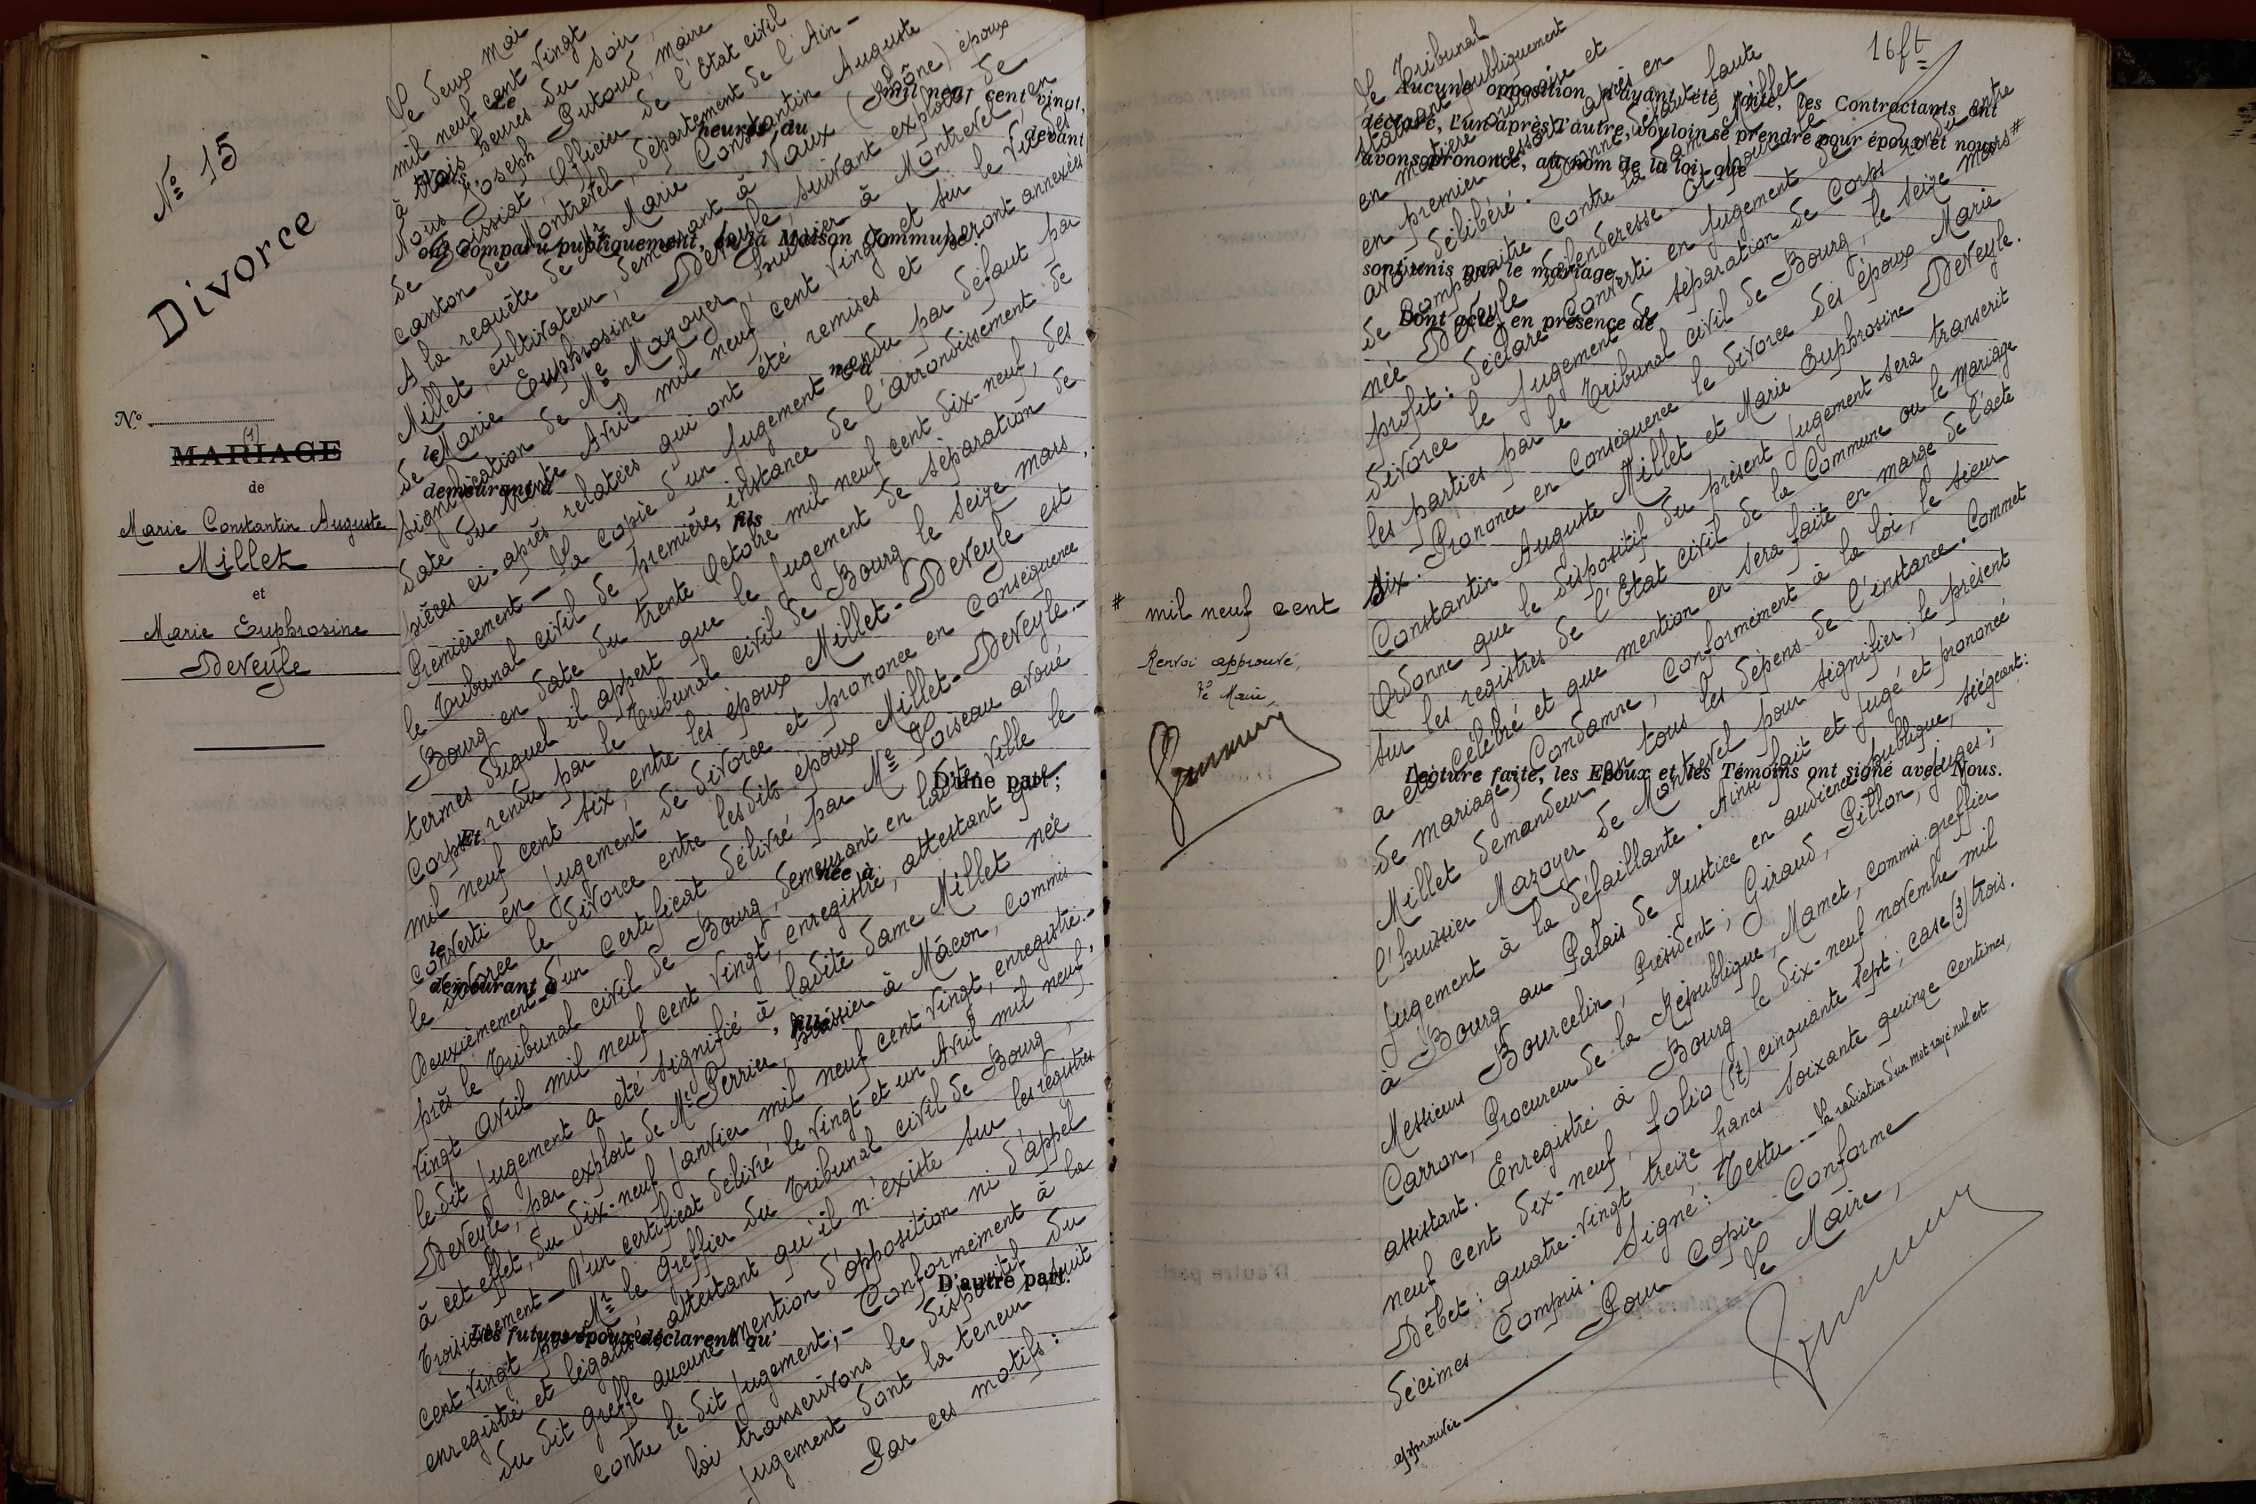 N° 15
Divorce
N°
(1)
MARIAGE
de
Marie Constantin Auguste
Millet
et
Marie Euphrosine
Deveyle
Le deux mai
mil neuf cent vingt
à trois heures du soir,
Nous Joseph Putoud, maire
de Foissiat, Officier de l'Etat civil
canton de Montrevel, département de l'Ain -
A la requête de Mr Marie Constantin Auguste
Millet, cultivateur, demeurant à Vaux (Rhône) époux
de Marie Euphrosine Deveyle, suivant exploit de
signification de Me Mazoyer, huissier à Montrevel, en
date du trente Avril mil neuf cent vingt et sur le vu des
pièces ci-après relatées qui ont été remises et seront annexées
Premièrement - La copie d'un jugement rendu par défaut par
le Tribunal civil de première instance de l'arrondissement de
Bourg en date du trente Octobre mil neuf cent dix-neuf, des
termes duquel il appert que le jugement de séparation de
Corps rendu par le Tribunal civil de Bourg le seize mars
mil neuf cent six, entre les époux Millet-Deveyle est
converti en jugement de divorce et prononce en conséquence
le divorce entre lesdits époux Millet-Deveyle.-
Deuxièmement - D'un certificat délivré par Me Loiseau avoué
près le Tribunal civil de Bourg, demeurant en ladite ville le
vingt avril mil neuf cent vingt, enregistré, attestant que
le dit jugement a été signifié à ladite dame Millet née
Deveyle, par exploit de Me Perrier, huissier à Mâcon, commis
à cet effet, du dix-neuf janvier mil neuf cent vingt, enregistré.-
Troisièmement - D'un certificat délivré le vingt et un Avril mil neuf
cent vingt par Mr le Greffier du Tribunal civil de Bourg,
enregistré et légalisé, attestant qu'il n'existe sur les registres
du dit Greffe aucune mention d'opposition ni d'appel
contre le dit jugement;- Conformément à la
loi transcrivons le dispositif du
jugement dont la teneur suit
Par ces motifs:
Le
mil neuf cent vingt,
heures du
devant
Nous
ont comparu publiquement, en la Maison Commune:
né à
le
demeurant à
, fils
D'une part;
Et
née à
le
demeurant à
, fille
D'autre part.
Les futurs époux déclarent qu'
16 ft
Le Tribunal
Statuant publiquement
en matière ordinaire et
en premier ressort après en
avoir délibéré. Donne défaut faute
de comparaître contre la dame Millet
née Deveyle défenderesse et pour le
profit: déclare converti en jugement de
divorce le jugement de séparation de corps rendu entre
les parties par le Tribunal civil de Bourg, le seize mars #
six. Prononce en conséquence le divorce des époux Marie
Constantin Auguste Millet et Marie Euphrosine Deveyle.
Ordonne que le dispositif du présent jugement sera transcrit
sur les registres de l'Etat civil de la Commune ou le mariage
a été célébré et que mention en sera faite en marge de l'acte
de mariage, Condamne, conformément à la loi, le sieur
Millet demandeur, en tous les dépens de l'instance. Commet
l'huissier Mazoyer de Montrevel pour signifier, le présent
jugement à la défaillante. Ainsi fait et jugé et prononcé
à Bourg au Palais de Justice en audience publique, siégeant:
Messieurs Bourcelin, Président; Giraud, Pillon, juges;
Carron, Procureur de la République, Mamet, commis-greffier
assistant. Enregistré à Bourg le dix-neuf novembre mil
neuf cent dix-neuf, folio (57) cinquante sept, case (3) trois.
Débet: quatre-vingt treize francs soixante quinze centimes,
décimes compris. Signé: Testu.- La radiation d'un mot rayé nul est
approuvée
Pour Copie Conforme
Le Maire,
# mil neuf cent
Renvoi approuvé,
Le Maire,
Aucune opposition n'ayant été faite, les Contractants ont
déclaré, l'un après l'autre, vouloir se prendre pour époux et nous
avons prononcé, au nom de la loi, que
sont unis par le mariage.
Dont acte, en présence de
Lecture faite, les Epoux et les Témoins ont signé avec Nous.